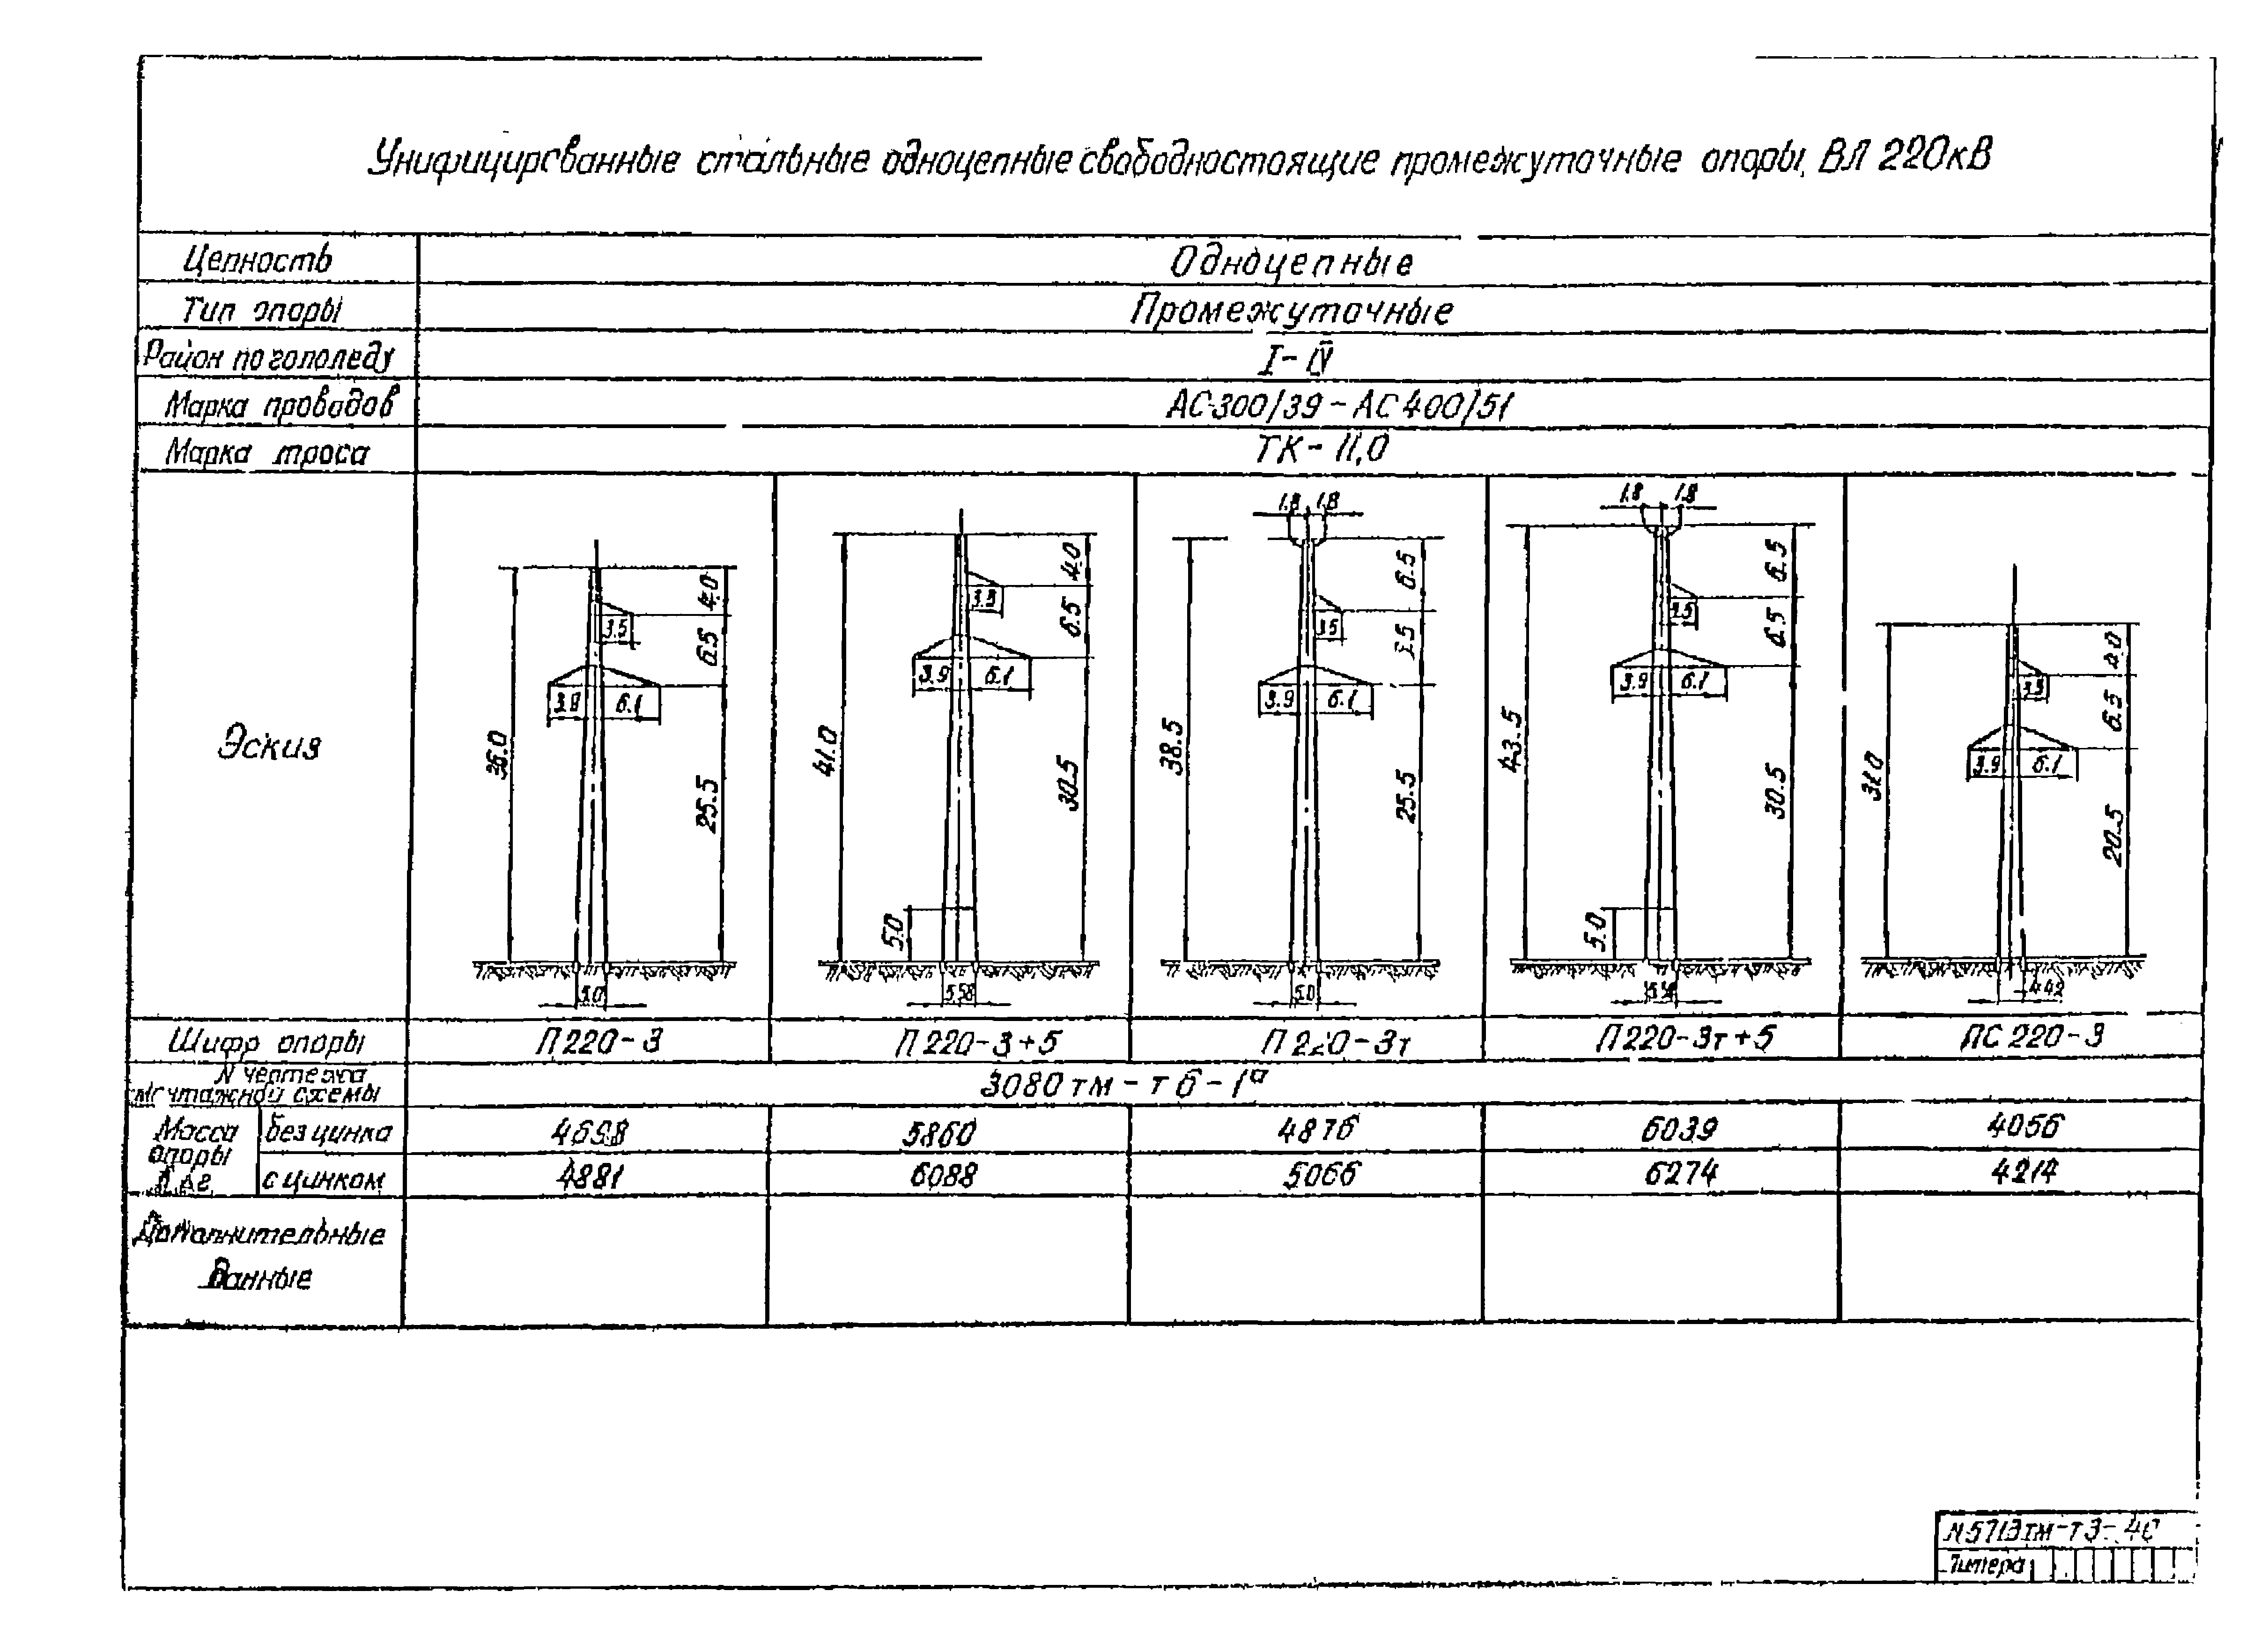 Унифицированные стальные одноцепные свободностоящие промежуточные опоры ВЛ 220кВ
Цепность Одноцепные
Тип опоры Промежуточные
Район по гололеду I-IV
Марка проводов АС-300/39-АС400/51
Марка троса ТК-11,0
Эскиз
36.0 4.0 6.5 25.5 3.5 3.9 6.1 5.0
41.0 4.0 6.5 30.5 3.5 3.9 6.1 5.0 5.58
1.8 1.8 38.5 6.5 25.5 3.5 3.9 6.1 5.0
1.8 1.8 43.5 6.5 6.5 30.5 3.5 3.9 6.1 5.0
31.0 4.0 6.5 20.5 3.5 3.9 6.1 4.42
Шифр опоры П220-3 П220-3+5 П220-3т П220-3т+5 ПС220-3
N чертежа
монтажной схемы 3080тм-т6-1а
Масса опоры в кг без цинка 4698 5860 4876 6039 4056
с цинком 4881 6088 5066 6274 4214
Дополнительные
данные
N5713тм-т3-40
Литера